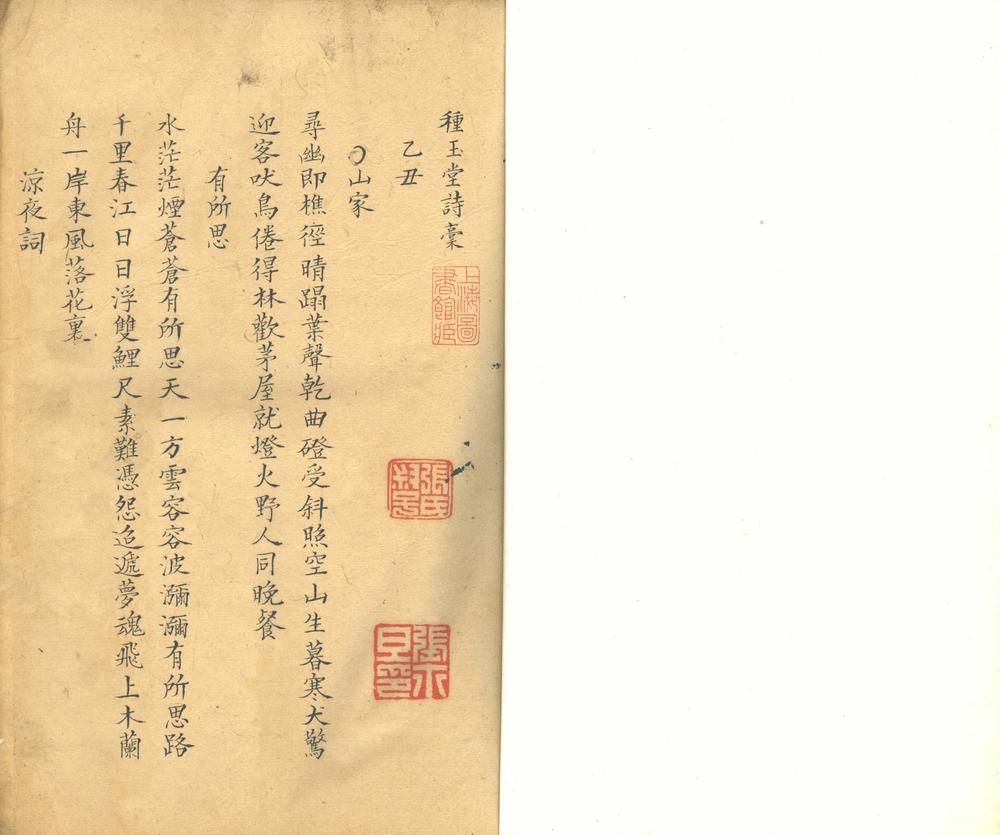 種玉堂詩稾
上海圖書館藏
乙丑
〇山家
尋幽即樵徑晴蹋葉聲乾曲磴受斜照空山生暮寒犬驚
迎客吠鳥倦得林歡茅屋就燈火野人同晚餐
有所思
水茫茫煙蒼蒼有所思天一方雲容容波瀰瀰有所思路
千里春江日日浮雙鯉尺素難憑怨迢遞夢魂飛上木蘭
舟一岸東風落花裏
涼夜詞